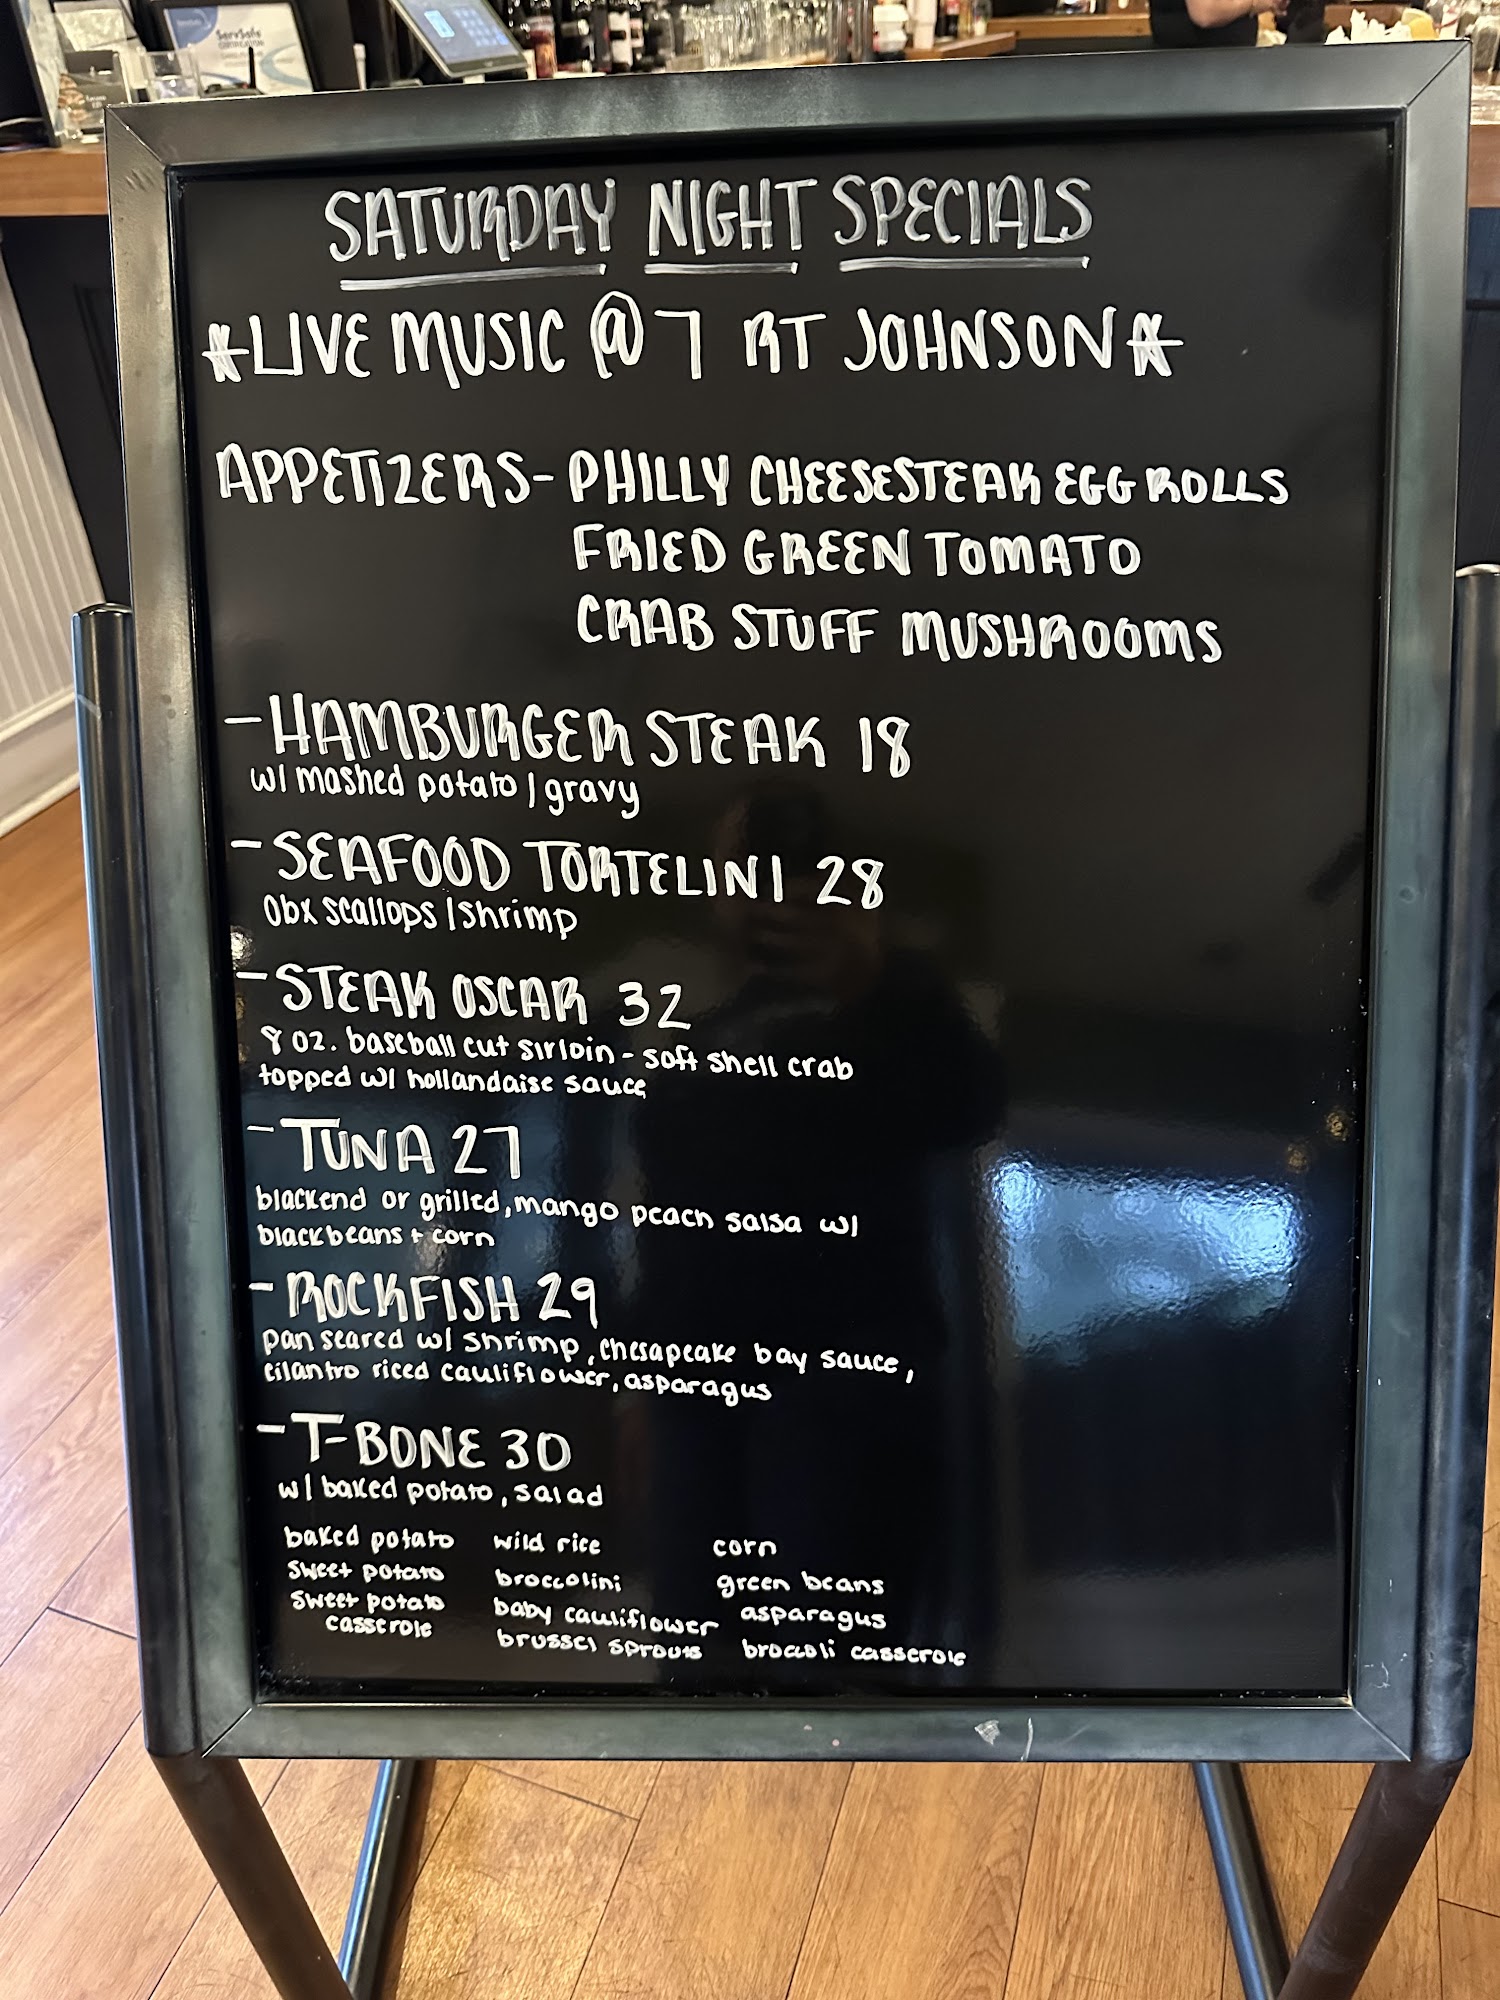 ServSafe
CERTIFICATION
SATURDAY NIGHT SPECIALS
*LIVE MUSIC @ 7 RT JOHNSON*
APPETIZERS- PHILLY CHEESESTEAK EGG ROLLS
FRIED GREEN TOMATO
CRAB STUFF MUSHROOMS
- HAMBURGER STEAK 18
w/ mashed potato / gravy
- SEAFOOD TORTELINI 28
Obx scallops / shrimp
- STEAK OSCAR 32
8 oz. baseball cut sirloin - soft shell crab
topped w/ hollandaise sauce
- TUNA 27
blackend or grilled, mango peach salsa w/
blackbeans + corn
- ROCKFISH 29
pan seared w/ shrimp, chesapeake bay sauce,
cilantro riced cauliflower, asparagus
- T-BONE 30
w/ baked potato, salad
baked potato wild rice corn
sweet potato broccolini green beans
sweet potato baby cauliflower asparagus
casserole brussel sprouts broccoli casserole